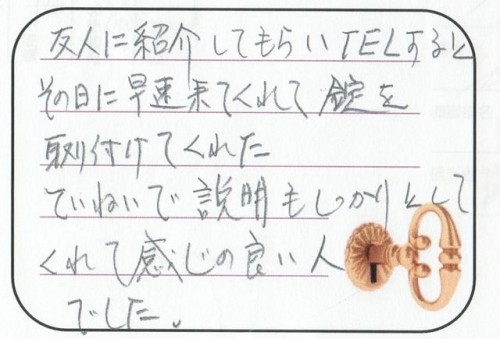 友人に紹介してもらいTELすると
その日に早速来てくれて錠を
取り付けてくれた
ていねいで説明もしっかりとして
くれて感じの良い人
でした。